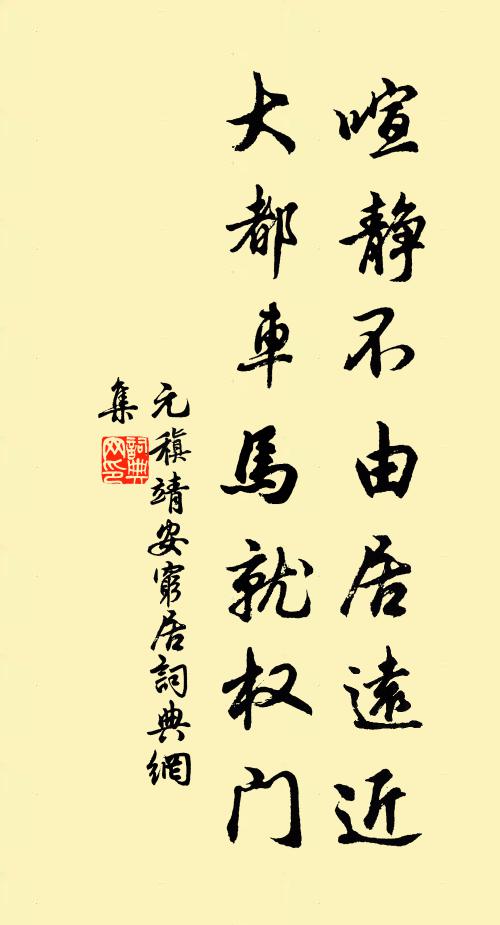 喧静不由居遠近
大都車馬就权门
元稹靖安窮居詞典網
集
詞典网印